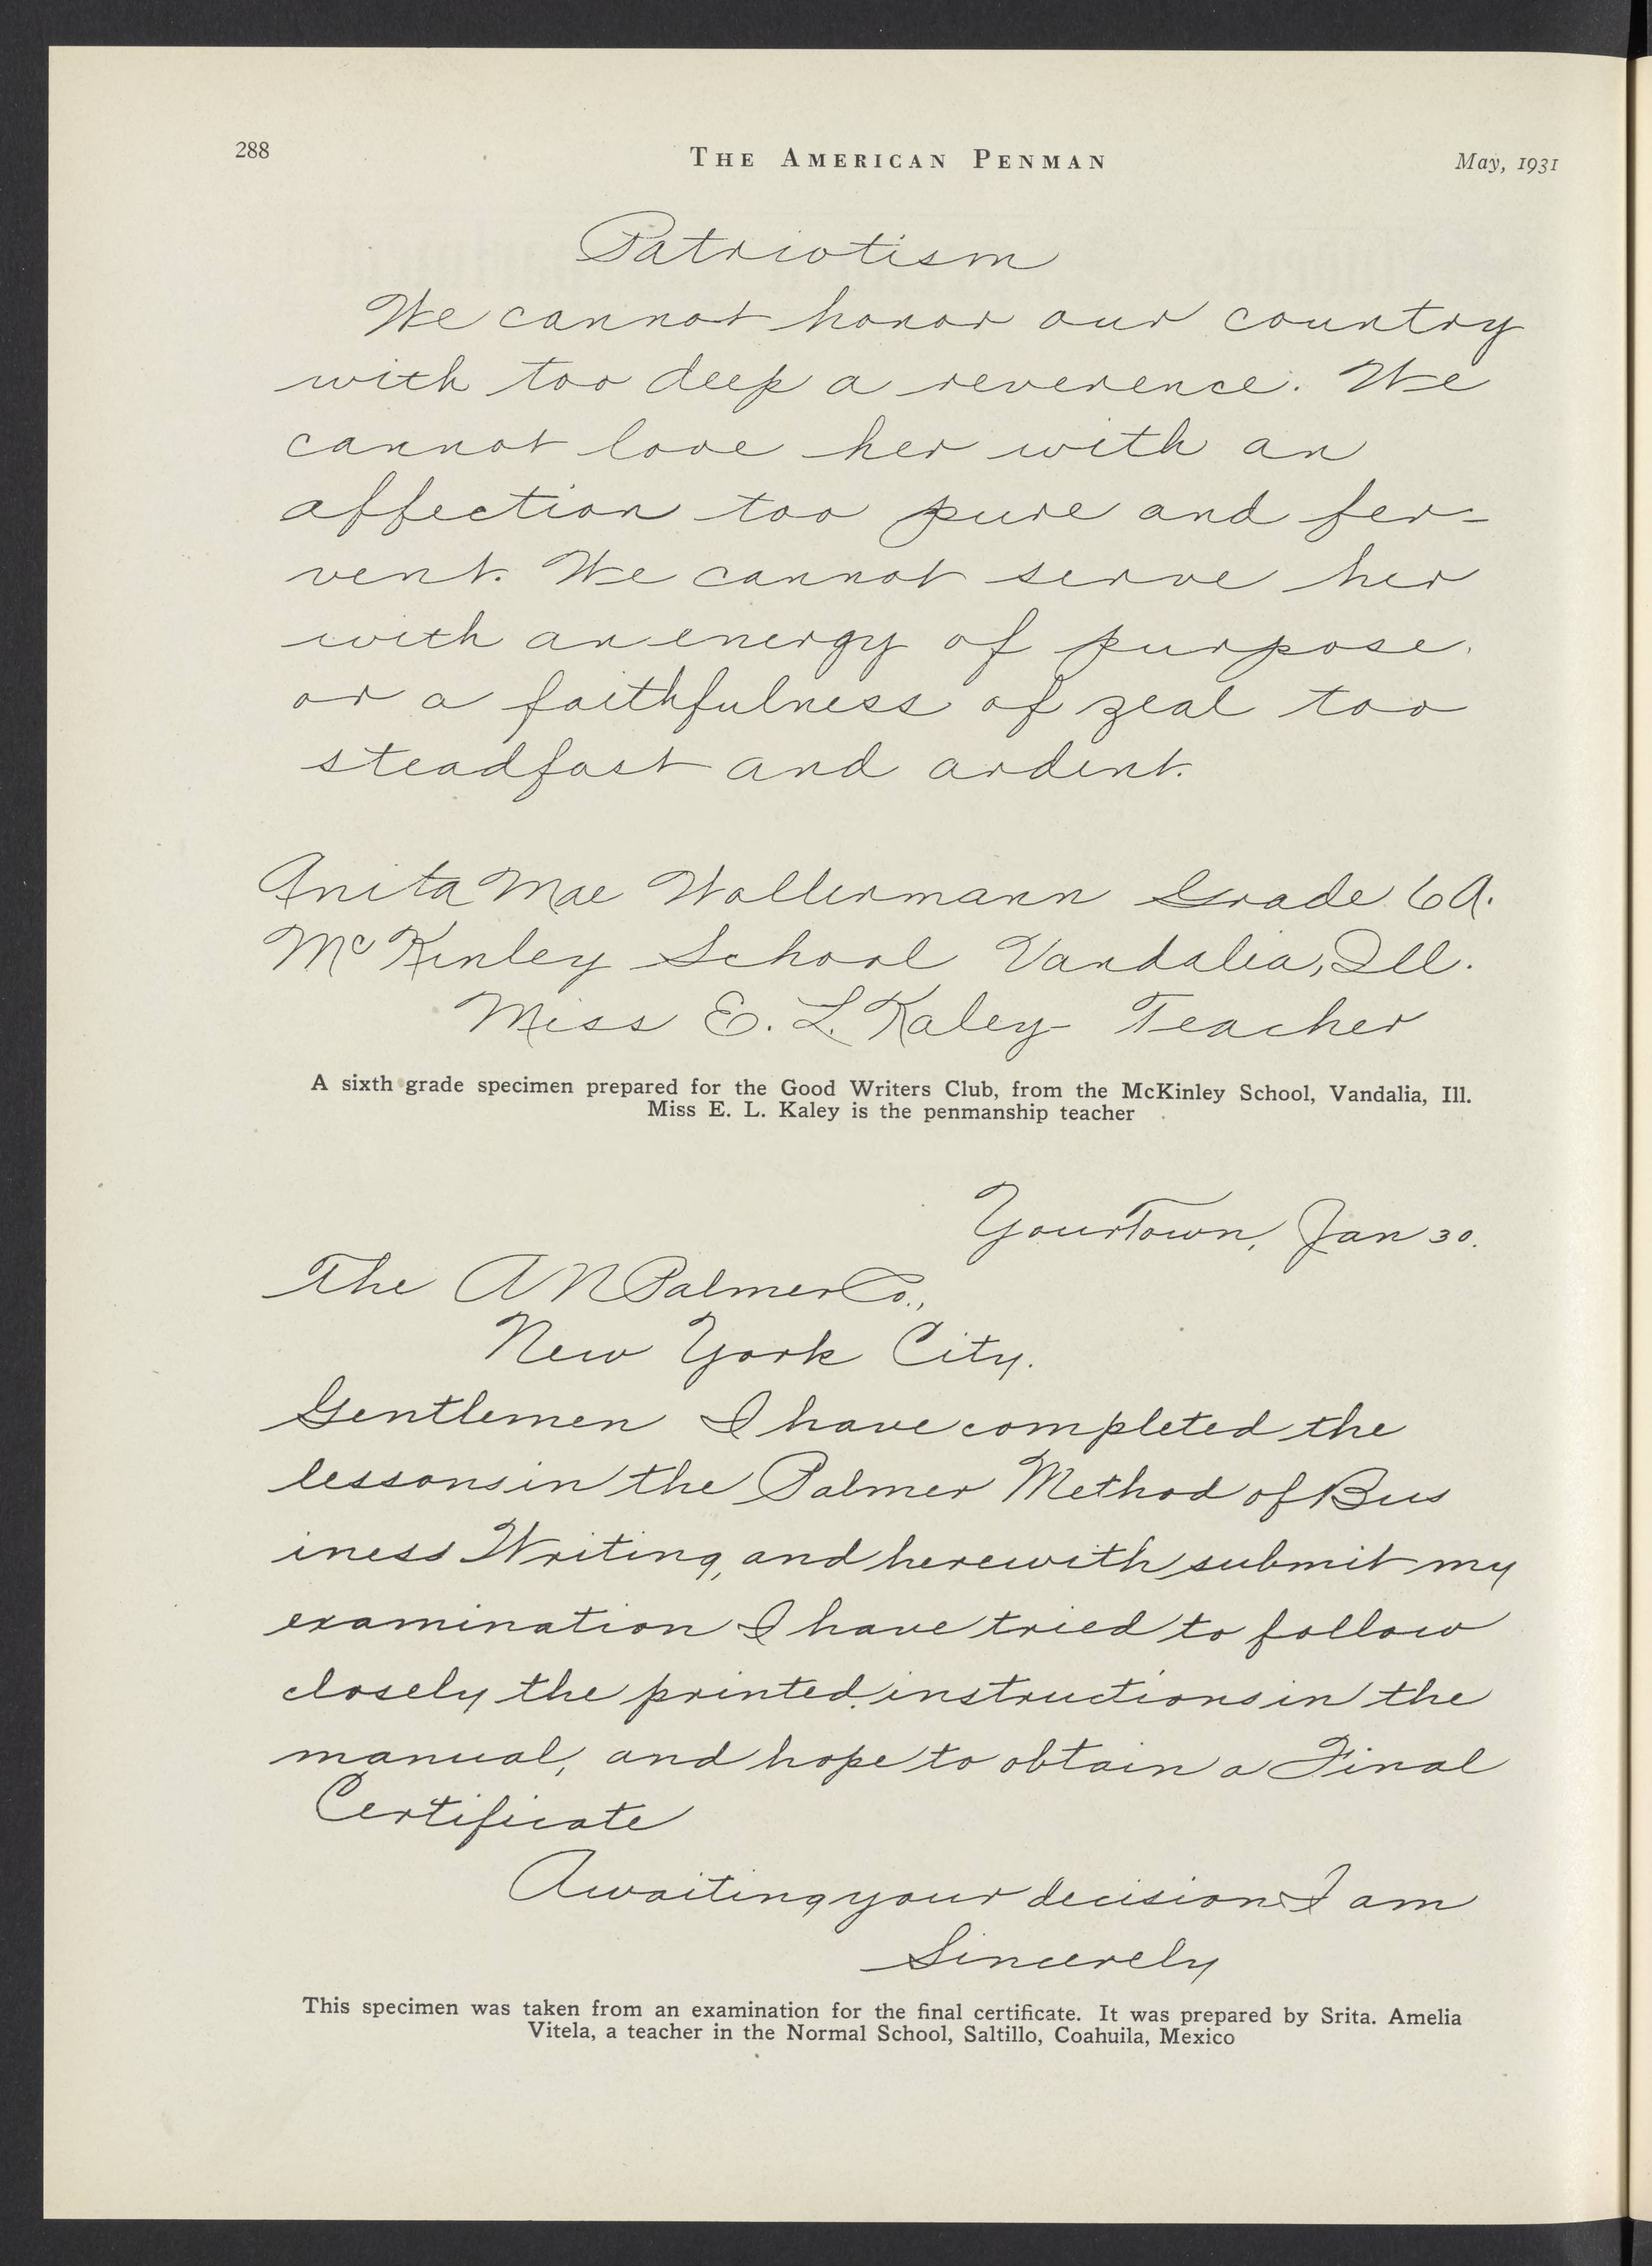 288 THE AMERICAN PENMAN May, 1931
Patriotism
We cannot honor our country
with too deep a reverence. We
cannot love her with an
affection too pure and fer-
vent. We cannot serve her
with an energy of purpose.
or a faithfulness of zeal too
steadfast and ardent.
Anita Mae Wollermann Grade 6A.
McKinley School Vandalia, Ill.
Miss E. L. Kaley Teacher
A sixth grade specimen prepared for the Good Writers Club, from the McKinley School, Vandalia, Ill.
Miss E. L. Kaley is the penmanship teacher
YourTown, Jan 30.
The A N Palmer Co.,
New York City.
Gentlemen I have completed the
lessons in the Palmer Method of Bus
iness Writing, and herewith submit my
examination I have tried to follow
closely the printed instructions in the
manual, and hope to obtain a Final
Certificate
Awaiting your decision I am
Sincerely
This specimen was taken from an examination for the final certificate. It was prepared by Srita. Amelia
Vitela, a teacher in the Normal School, Saltillo, Coahuila, Mexico